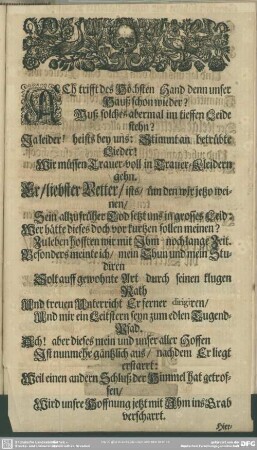 ACh trifft des Höchsten Hand denn unser
Hauß schon wieder?
Muß solches abermal im tieffen Leide
stehn?
Ja leider! heists bey uns: Stimmt an betrübte
Lieder!
Wir müssen Trauer-voll in Trauer-Kleidern
gehn.
Er/ liebster Vetter/ ists/ üm den wir jetzo wei-
nen/
Sein allzufrüher Tod setzt uns in grosses Leid:
Wer hätte dieses doch vor kurtzen sollen meinen?
Zuleben hofften wir mit Ihm noch lange Zeit.
Besonders meinte ich/ mein Thun und mein Stu-
diren
Solt auff gewohnte Art durch seinen klugen
Rath
Und treuen Unterricht Er ferner dirigiren/
Und mir ein Leitstern seyn zum edlen Tugend-
Pfad.
Ach! aber dieses mein und unser aller Hoffen
Ist nunmehr gäntzlich aus/ nachdem Er liegt
erstarrt:
Weil einen andern Schluß der Himmel hat getrof-
fen/
Wird unsre Hoffnung jetzt mit Ihm ins Grab
verscharrt.
Hier-